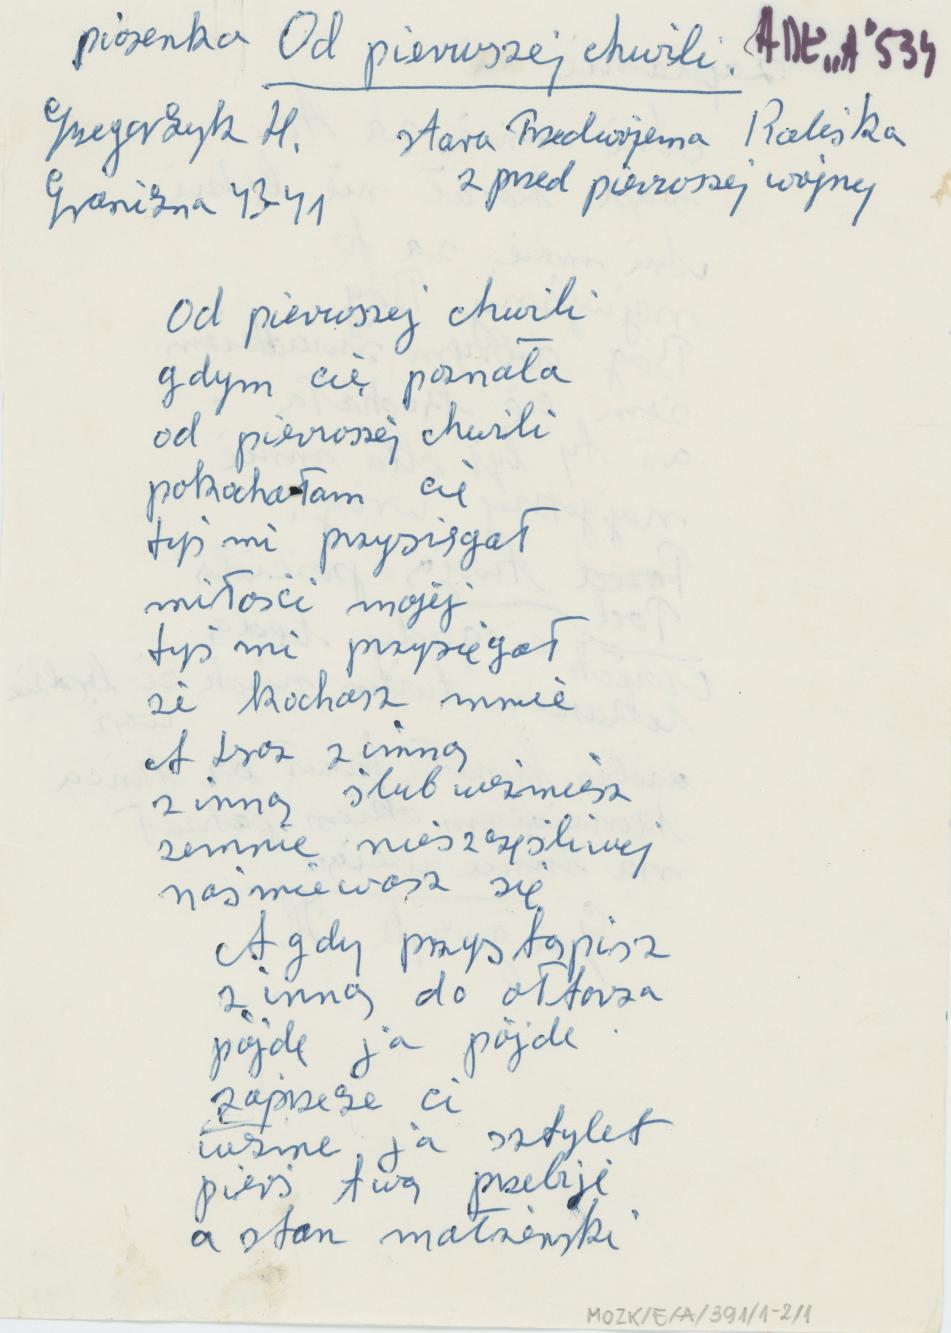 piosenka Od pierwszej chwili. ADŁ „A" 534
Grzegorzyk H. stara Przedwojenna Kaliska
Graniczna 43-41 z przed pierwszej wojny
Od pierwszej chwili
gdym cię poznała
od pierwszej chwili
pokochałam cię
tyś mi przysięgał
miłości mojej
tyś mi przysięgał
że kochasz mnie
A teraz z inną
z inną ślub weźmiesz
zemnie nieszczęśliwej
naśmiewasz się
A gdy przystąpisz
z inną do ołtarza
pójdę ja pójde
zaprzeże ci
wezme ja sztylet
pierś twą przebije
a stan małżeński
MOZK/E/A/391/1-2/1